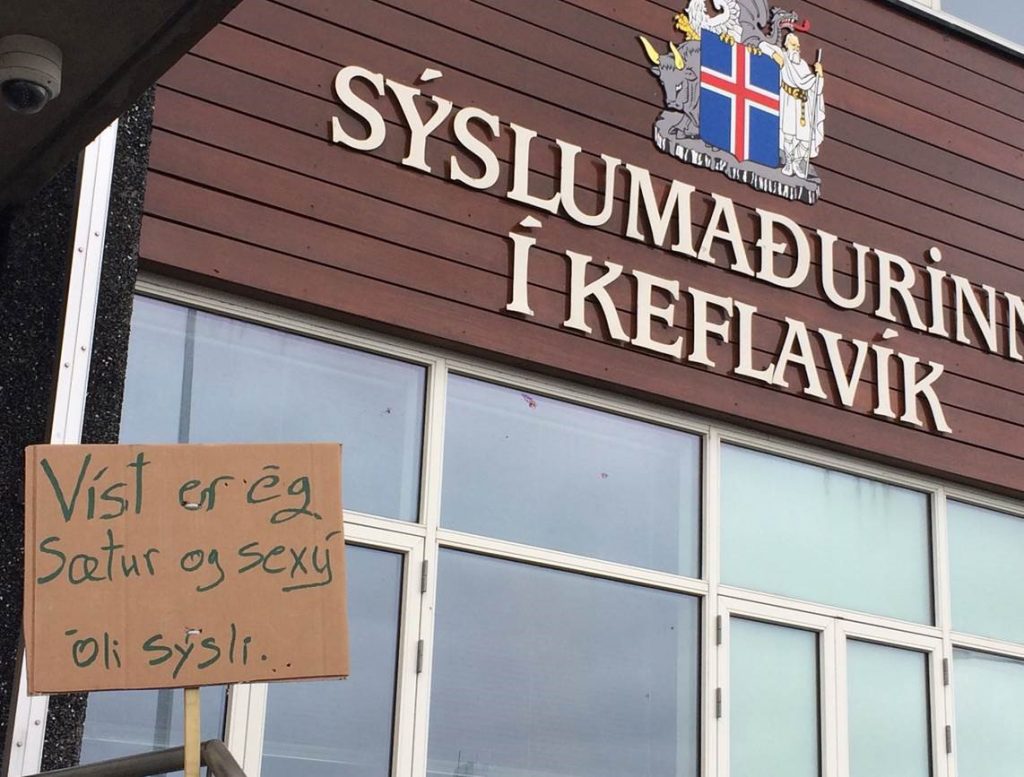 SÝSLUMAÐURINN
Í KEFLAVÍK
Víst er ég
sætur og sexý
Óli sýsli...